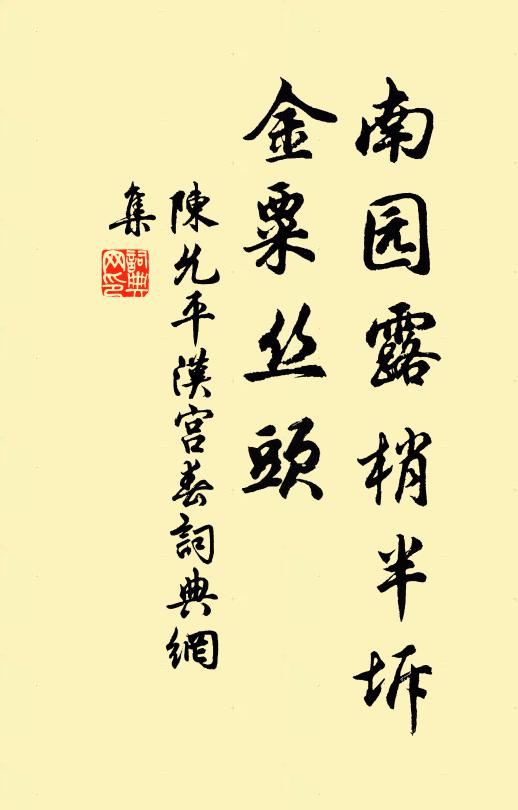 南园露梢半坼
金粟丝頭
陳允平漢宮春詞典網
集
詞典
网印